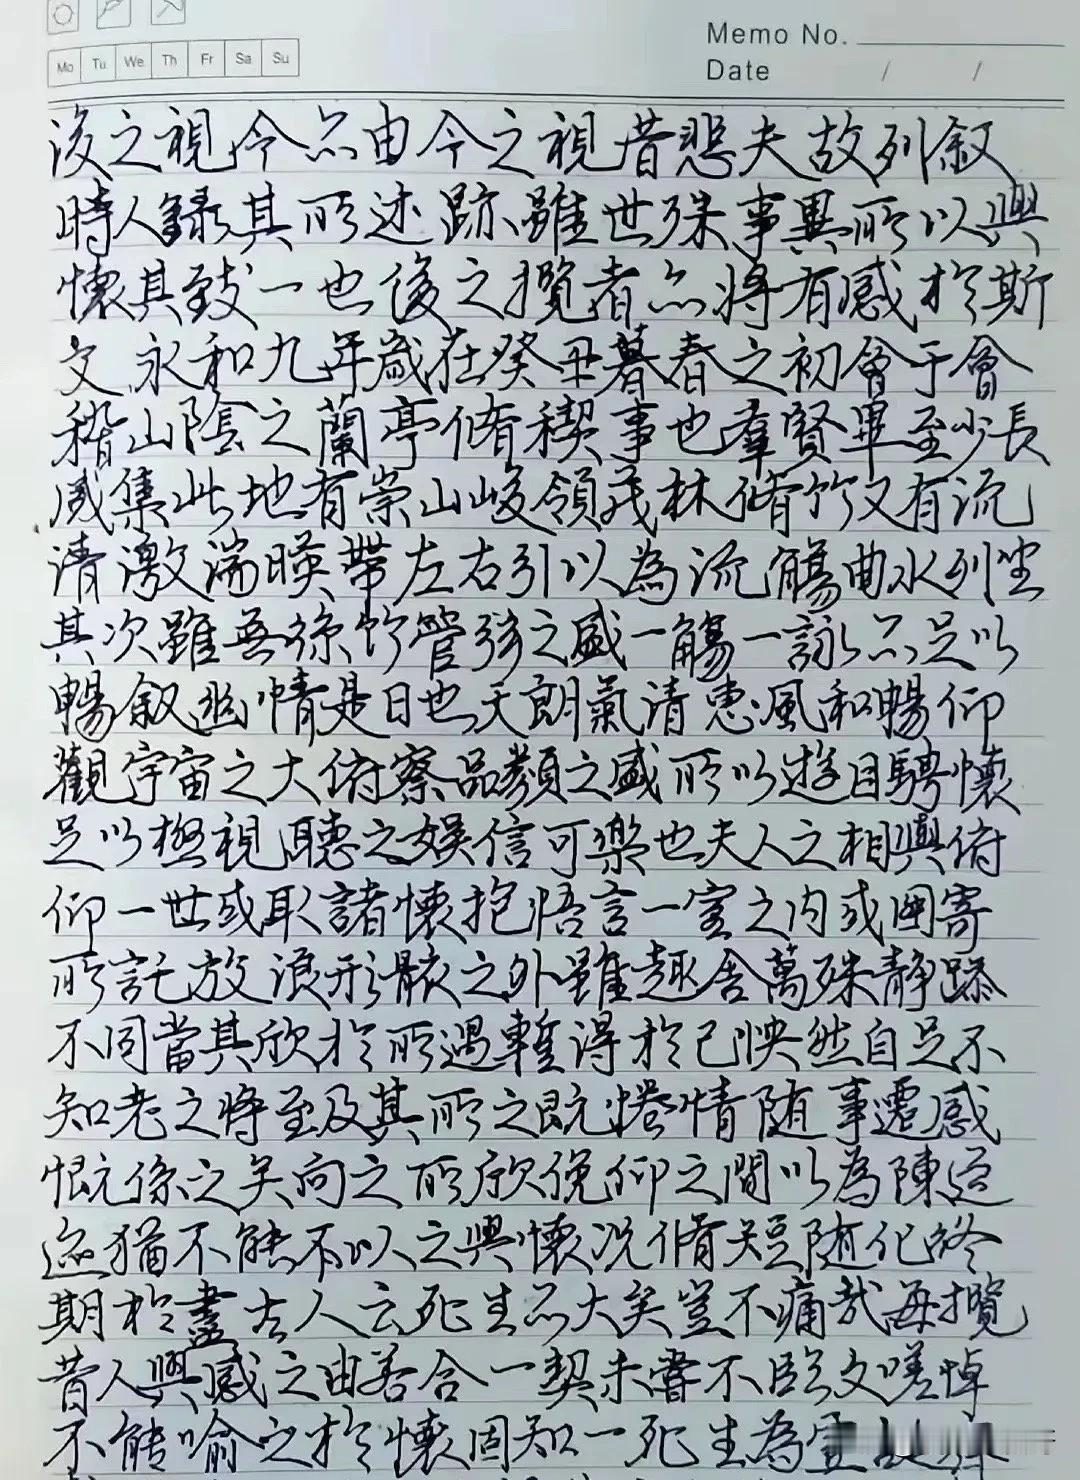 Memo No.
Mo Tu We Th Fr Sa Su
Date / /
後之視今亦由今之視昔悲夫故列叙
時人録其所述雖世殊事異所以興
懷其致一也後之攬者亦將有感於斯
文永和九年歲在癸丑暮春之初會于會
稽山陰之蘭亭脩稧事也羣賢畢至少長
咸集此地有崇山峻領茂林脩竹又有流
清激湍暎帶左右引以為流觴曲水列坐
其次雖無絲竹管弦之盛一觴一詠亦足以
暢叙幽情是日也天朗氣清惠風和暢仰
觀宇宙之大俯察品類之盛所以遊目騁懷
足以極視聽之娱信可樂也夫人之相與俯
仰一世或取諸懷抱悟言一室之内或因寄
所託放浪形骸之外雖趣舎萬殊静躁
不同當其欣於所遇蹔得於己怏然自足不
知老之將至及其所之既惓情随事遷感
慨係之矣向之所欣俛仰之間以為陳
迹猶不能不以之興懷况脩短随化終
期於盡古人云死生亦大矣豈不痛哉每攬
昔人興感之由若合一契未嘗不臨文嗟悼
不能喻之於懷固知一死生為虚